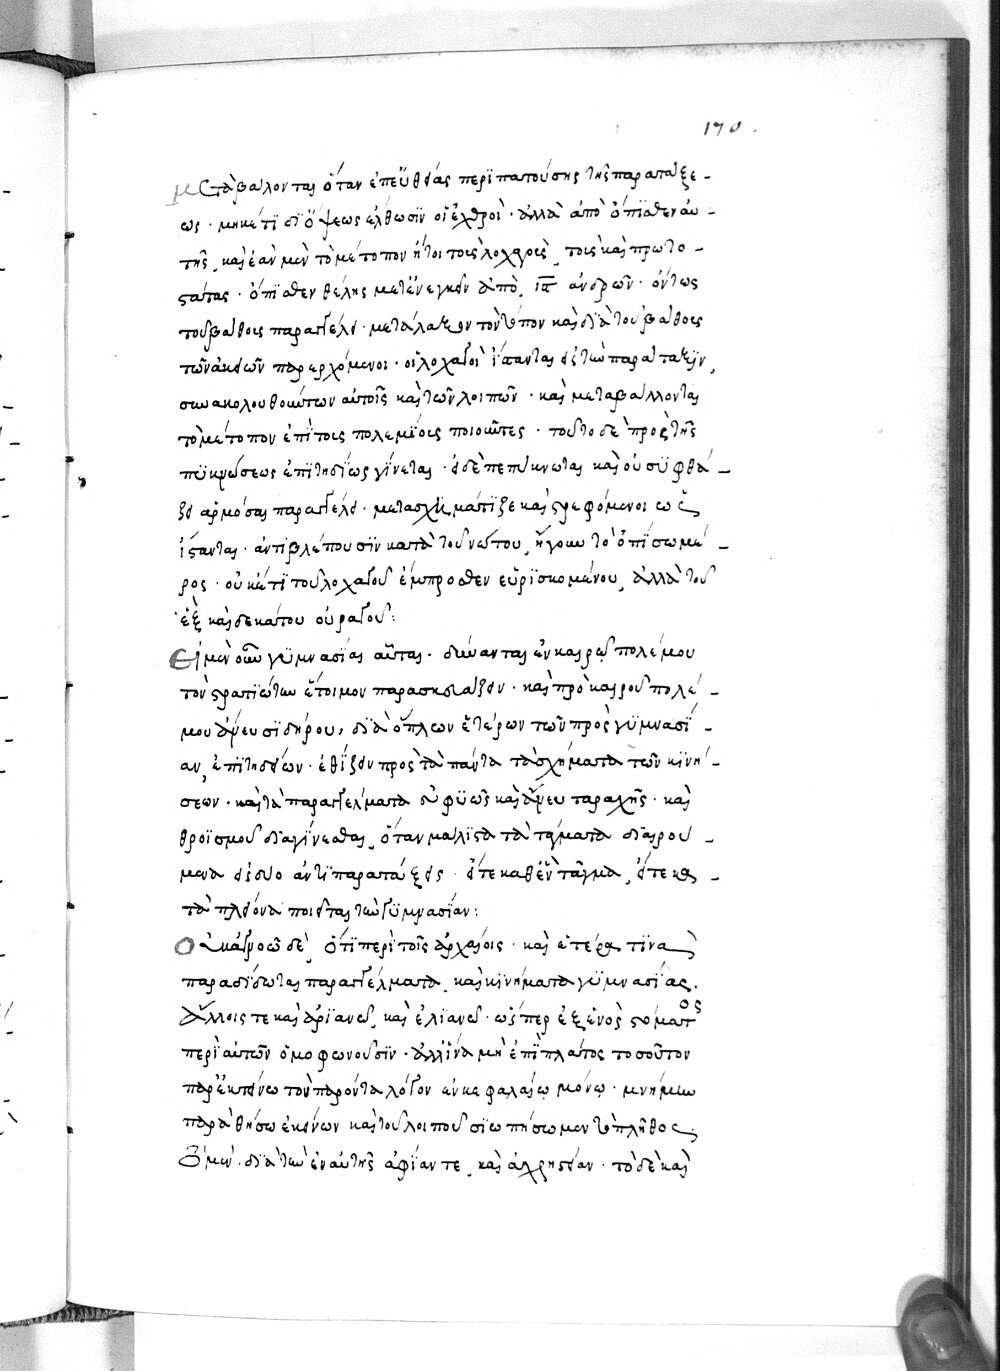 170
μεταβάλονται ὅταν ἐπευθείας περιπατούσης τῆς παρατάξε-
ως · μηκέτι δι ὄψεως ἔλθωσιν οἱ ἐχθροὶ · ἀλλὰ ἀπὸ ὄπισθεν αὐ-
τῆς, καὶ ἐὰν μὲν τὸ μέτοπον ἤτοι τοὺς λοχαγοὺς, τοὺς καὶ πρωτο-
στάτας · ὄπισθεν θέλης μετενεγκεῖν ἀπὸ ις ἀνδρῶν · ὄντως
τοῦ βάθους παραγγέλει · μετάλαξον τὸν τόπον καὶ διὰ τοῦ βάθους
τῶν ἀκιῶν παρερχόμενοι · οἱ λοχαγοὶ ἵστανται εἰς τὴν παράταξιν,
συνακολουθούντων αὐτοῖς καὶ τῶν λοιπῶν · καὶ μεταβάλλονται
τὸ μέτοπον ἐπὶ τοὺς πολεμίους ποιοῦντες · τοῦτο δὲ πρὸ τῆς
πυκνώσεως ἐπιτηδείως γίνεται · εἰ δὲ πεπύκνωται καὶ οὐ συφθά-
ξει ἁρμόσαι παραγγέλει · μετασχημάτιξε καὶ στρεφόμενοι ὡς
ἵστανται · ἀντιβλέπουσιν κατὰ τοῦ νώτου, ἤγουν τὸ ὀπίσω μέ-
ρος · οὐκέτι τοῦ λοχαγοῦ ἔμπροσθεν εὑρισκομένου, ἀλλὰ τοῦ
ἓξ καὶ δεκάτου οὐραγοῦ:
Εἰ μὲν οὖν γυμνασίαι αὗται · δύνανται ἐν καιρῷ πολέμου
τὸν στρατιώτην ἕτοιμον παρασκευάζειν · καὶ πρὸ καιροῦ πολέ-
μου ἄνευ σιδήρου, διὰ ὅπλων ἑτέρων τῶν πρὸς γυμνασί-
αν, ἐπιτηδείων · ἐθίζειν πρὸς τὰ πάντα τὰ σχήματα τῶν κινή-
σεων · καὶ τὰ παραγγέλματα εὐφυῶς καὶ ἄνευ ταραχῆς · καὶ
θροϊσμοῦ διαγίνεσθαι, ὅταν μάλιστα τὰ τάγματα διαιρού-
μενα εἰς δύο ἀντιπαρατάξεις · εἴτε καθ ἓν τάγμα, εἴτε κα-
τὰ πλείονα ποιεῖται τὴν γυμνασίαν:
Οὐκ ἀγνοῶ δὲ, ὅτι περὶ τοῖς ἀρχαίοις · καὶ ἕτερα τινὰ
παραδίδωται παραγγέλματα, καὶ κινήματα γυμνασίας.
ἄλλοις τε καὶ ἀριανῶ, καὶ ἐλιανῶ · ὥσπερ ἐξ ἑνὸς στόματος
περὶ αὐτῶν ὁμοφωνοῦσιν · ἀλλ ἵνα μὴ ἐπὶ πλάτος τοσοῦτον
παρεκτείνω τὸν παρόντα λόγον ἐν κεφαλαίῳ μόνῳ · μνήμην
παραθήσω ἐκείνων καὶ τοῦ λοιποῦ σιωπήσωμεν τὸ πλῆθος
Ὃ μὲν · διὰ τὴν ἐν αὐτῆς ἀφίαν τε, καὶ ἀχρηστίαν · τὸ δὲ καὶ